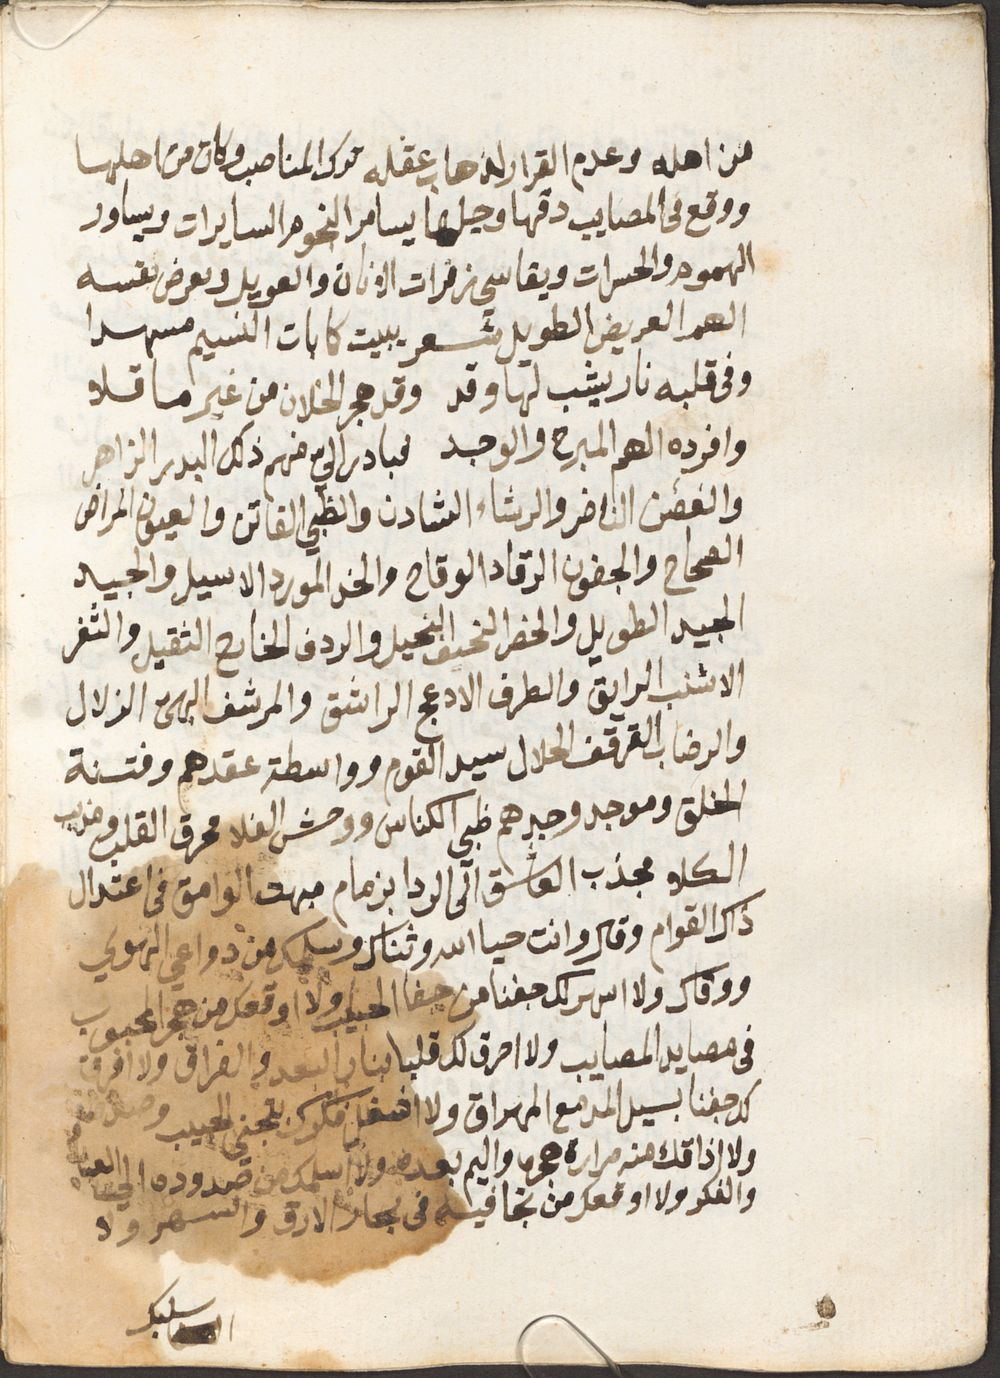 من اهله وعدم القرار لذهاب عقله ترك المناصب وكان من اهلها
ووقع فى المصايب دقها وجلها يسامر النجوم السايرات ويساور
الهموم والحسرات ويقاسي زفرات الانات والعويل ويعرض نفسه
الهم العريض الطويل شعر يبيت كابات النسيم مسهدا
وفى قلبه نار يشب لها وقد وقد هجر الخلان من غير ما قلا
وافرده الهم المبرح والوجد فبادر الي منهم ذلك البدر الزاهر
والغصن الناضر والرشاء الشادن والظبي الفاتن والعيون المراض
الصحاح والجفون الرقاد الوقاح والخد المورد الاسيل والجيد
الجيد الطويل والخصر النحيف النحيل والردف الخارج الثقيل والثغر
الاشنب الرايق والطرف الادعج الراشق والمرشف الزلال
والرضاب القرقف الحلال سيد القوم وواسطة عقدهم وفتنة
الخلق وموجد وجدهم ظبي الكناس ووحش الفلا محرق القلب ومذيب
الكلا مجذب العاشق الى الردا بزمام مبهت الوامق فى اعتدال
ذاك القوام وقال وانت حياك الله وسلمك من دواعي الهوي
ووقاك ولا اسهر لك جفنا من جفا الحبيب ولا اوقعك من هجر المحبوب
فى مصايد المصايب ولا احرق لك قلبا بنار البعد والفراق ولا اغرق
لك جفنا بسيل المدمع المهراق ولا اشغل فكرك بتجني الحبيب
ولا اذاقك منه مرارة هجره واليم بعده ولا اسلمك من صدوده الي
والفكر ولا اوقعك من تجافيه فى بحار الارق والسهر ولا
سلبك